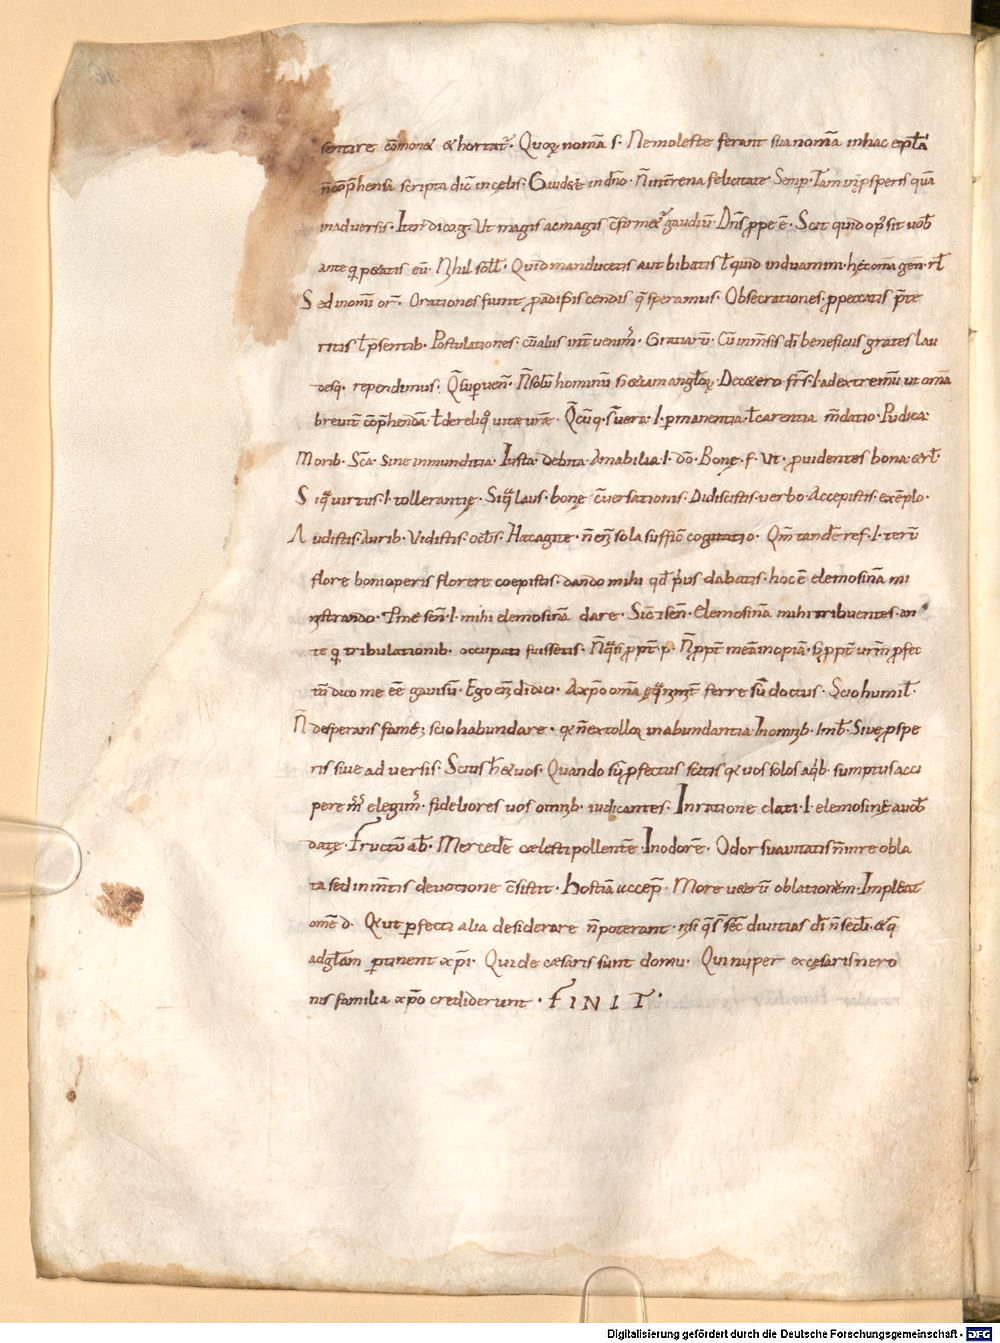 sentire cōmonet & hortat᷑. Quorꝫ nomā s. Ne moleste ferant sua nomīa in hac epl̄a
n̄ cōp̄hensa scripta dic̄ in celis. Gaudete in dn̄o. N̄ in t̄rena felicitate Semp. Tam in p̄speris quā
in adversis. Iter̄ dico g. Ut magis ac magis c̄firmet᷑ gaudiū. Dn̄s ꝓpe ē. Scit quid op᷒ sit vob̄
ante q̄ petatis eū. Nihil soll̄. Quid manducetis aut bibatis l̄ quid induamini. hec om̄a gen̄. rl̄
Sed in omī or̄. Orationes fiunt ꝓ adipiscendis q̄ speramus. Obsecrationes ꝓ peccatis p̄te
ritis l̄ p̄sentib. Postulationes. cū alius int̄venim᷒. Gratiarū. Cū inm̄sis dī beneficiis grates lau
desq. rependimus. Q̄ sup̱ven̄. N̄ solū hominū s; etiam angl̄oꝝ. De cetero fr̄s. i. ad extremū ut om̄a
brevit̄ cōp̄hendā. l̄ de reliq᷒ vitae vr̄ae. Q̄cūq. s vera. i. p̱manentia. l̄ carentia m̄datio. Pudica
Morib. Sc̄a. Sine inmunditia. Iusta. debita. Amabilia. i. dō. Bonę. f. Ut. ꝓvidentes bona. & rl̄
Si q̄ virtus. i. tollerantię. Si q̄ laus. bonę c̄versationis. Didiscistis. verbo. Accepistis. exēplo.
Audistis. Aurib. Vidistis. ocl̄s. Haec agite. n̄ eni sola suffic̄ cogitatio. Qm̄ tandē ref. i. iterū
flore boni operis florere coepistis. dando mihi qd p̄us dabatis. hoc ē elemosinā mi
nistrando. P me sen̄. i. mihi elemosinā dare. Sic̄ & sen̄. Elemosinā mihi tribuentes. an
te q̄ tribulationib. occupati fuissetis. N̄ q̄si ꝓpt̄ p. N̄ ꝓpt̄ meā inopiā. s; ꝓpt̄ vr̄m ꝓfec
tū dico me eē gavisū. Ego eni didici. A xp̄o om̄a eq̄nimit̄ ferre sū doctus. Scio humil̄.
N̄ desperans famē; scio habundare. & n̄ extolloꝛ in abundantia. In omnib. Imb̄. Sive ꝓspe
ris sive adversis. Scitis h̄ & vos. Quando sū ꝓfectus scitis q vos solos a q̄b. sumptus acci
pere m̄ elegim᷒. fideliores vos omnib. iudicantes. In ratione dati. i. elemosinę a vob̄
datę. Fructū ab̄. Mercedē caelesti pollentē. In odorē. Odor suavitatis n̄ in re obla
ta sed in m̄tis devotione c̄sistit. Hostiā accep̄. More veterū oblationem. Impleat
omē d. Q ut p̱fecti alia desiderare n̄ poterant. nisi q̄ s̄ sec̄ divitias dī n̄ secl̄i. & q̄
ad gl̄am p̱tinent xp̄i. Qui de caesaris sunt domu. Qui nup̱ er ex cęsaris nero
nis familia xp̄o crediderunt. FINIT.